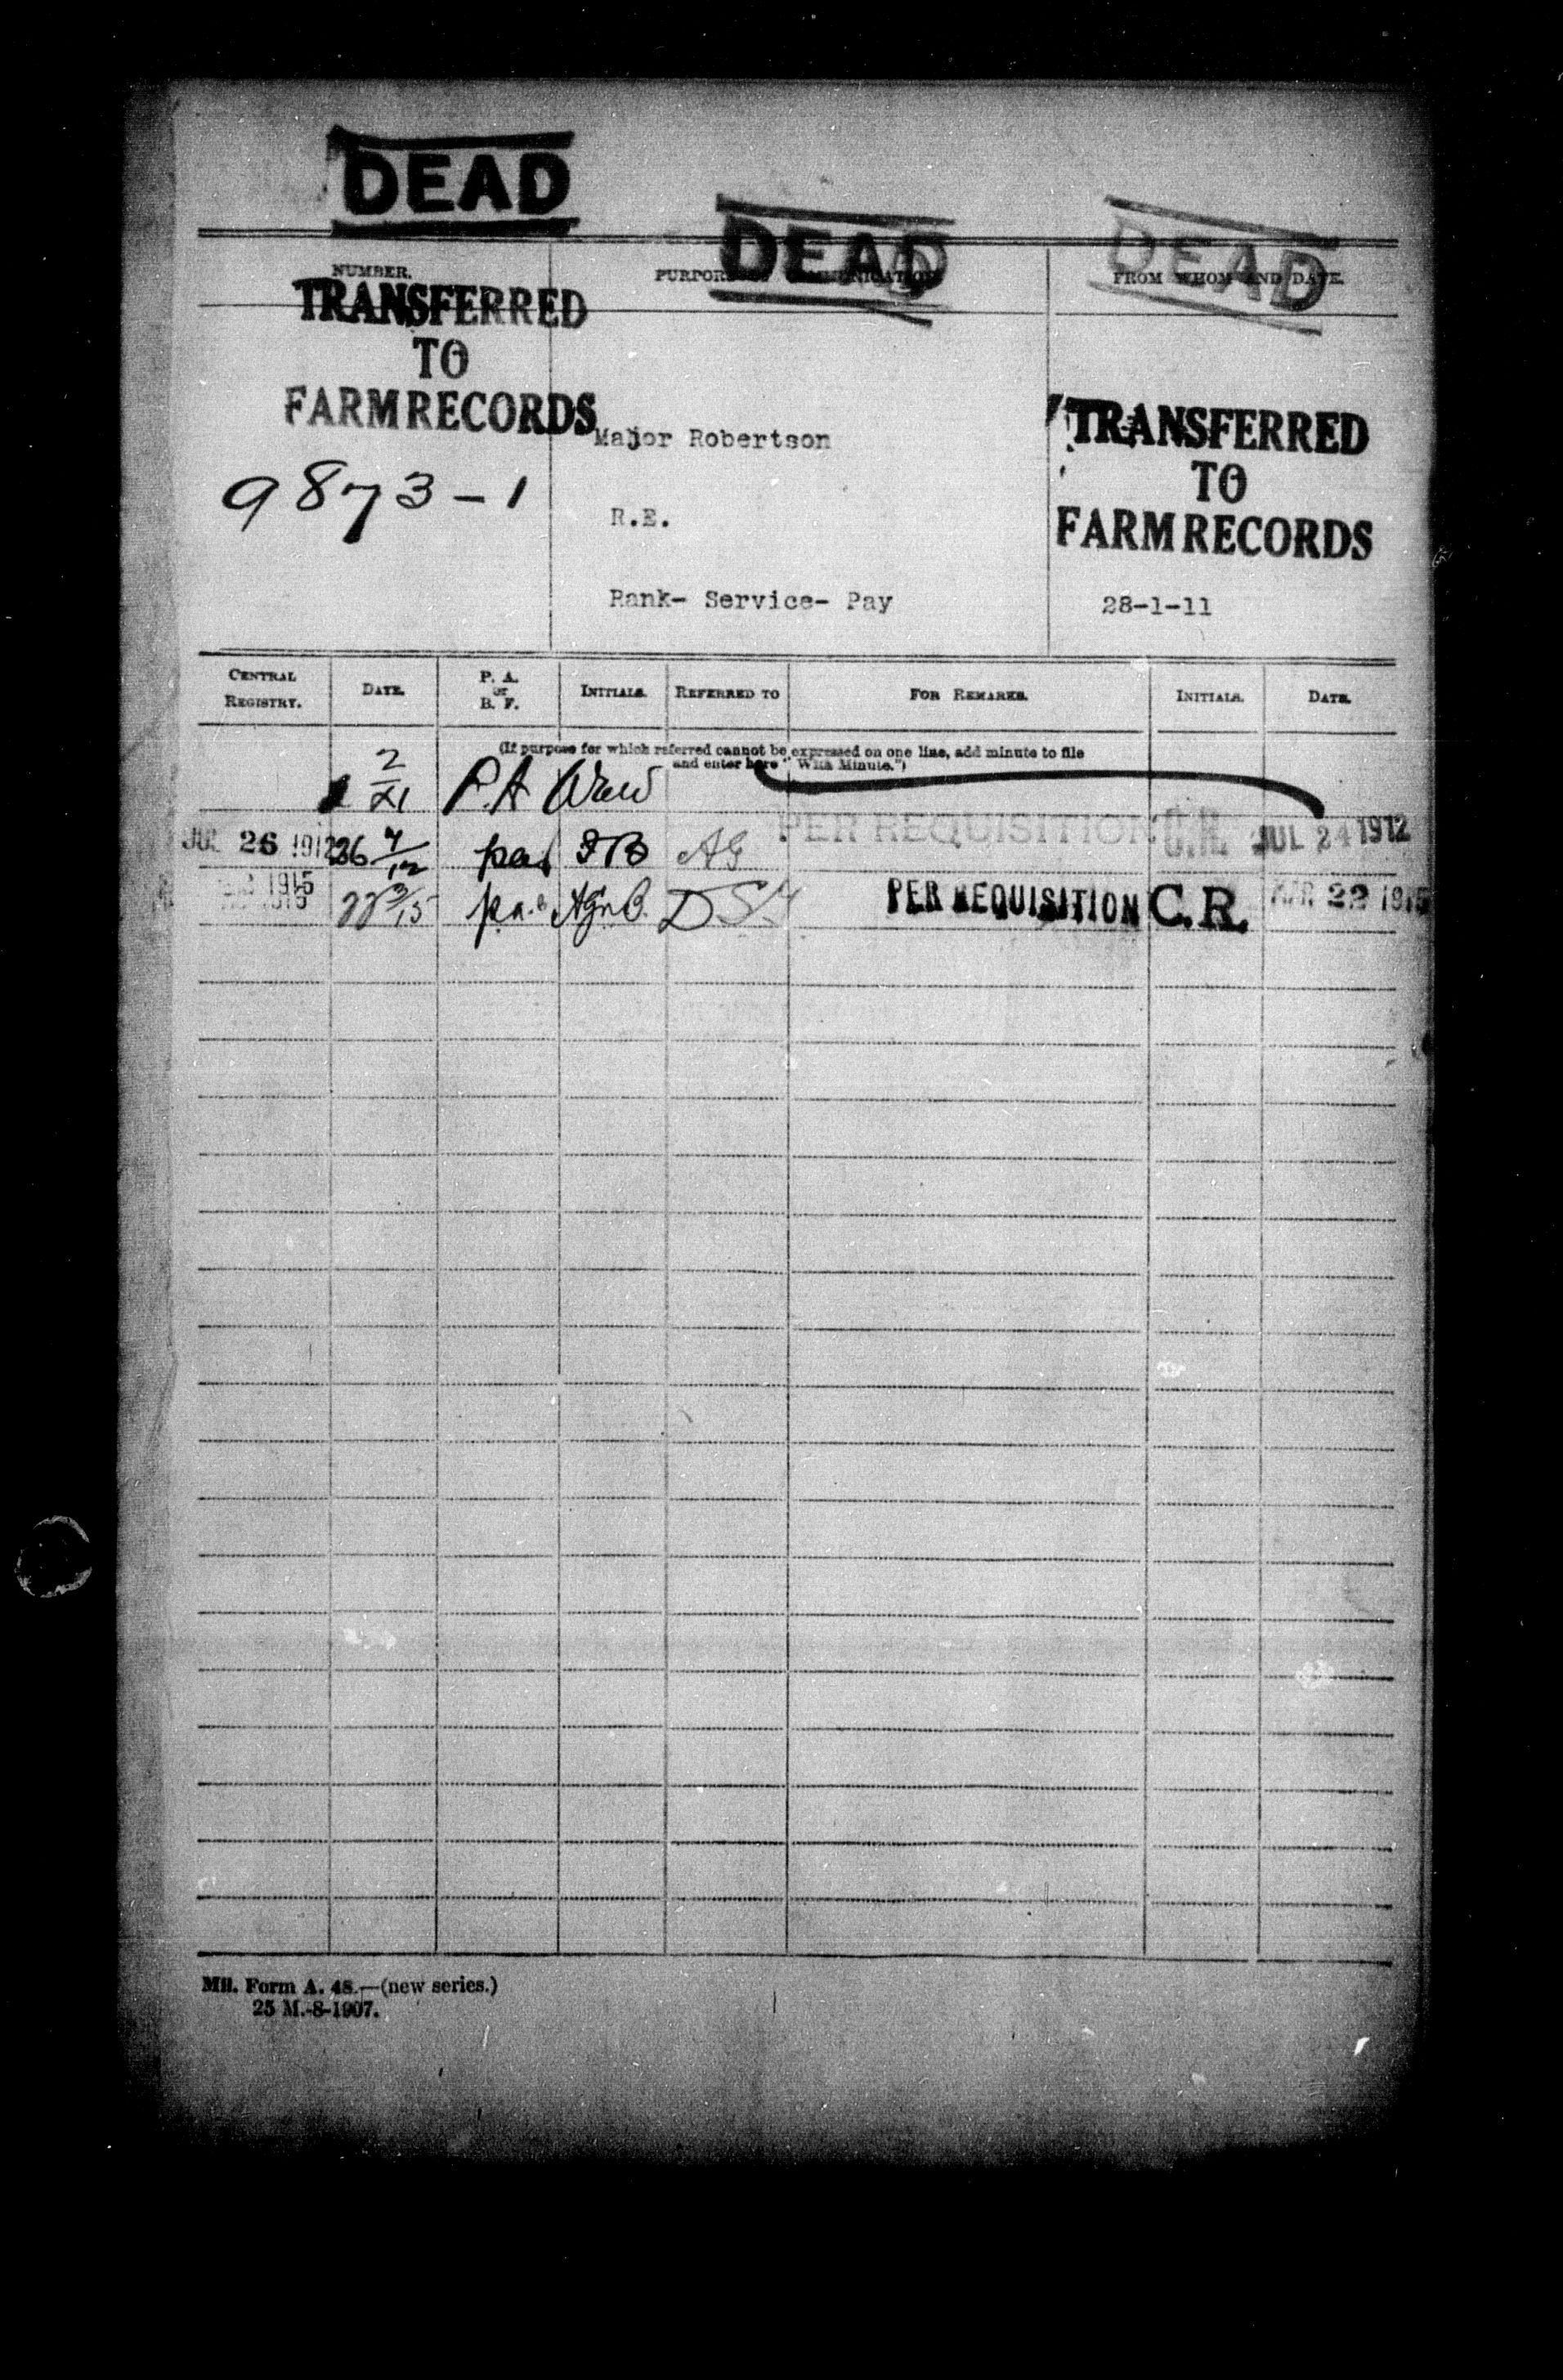 DEAD
DEAD
DEAD
NUMBER.
FROM WHOM AND DATE.
TRANSFERRED
TO
FARM RECORDS
9873-1
Major Robertson
R.E.
Rank- Service- Pay
TRANSFERRED
TO
FARM RECORDS
28-1-11
CENTRAL REGISTRY.
DATE.
P. A. or B. F.
INITIALS.
REFERRED TO
FOR REMARKS.
INITIALS.
DATE.
(If purpose for which referred cannot be expressed on one line, add minute to file
and enter here "With Minute.")
2/XI P.A
JUL 26 1912 26 7/12 pa AG PER REQUISITION C.R. JUL 24 1912
1915 22 3/15 pa. PER REQUISITION C.R. MAR 22 1915
Mil. Form A. 48.—(new series.)
25 M.-8-1907.